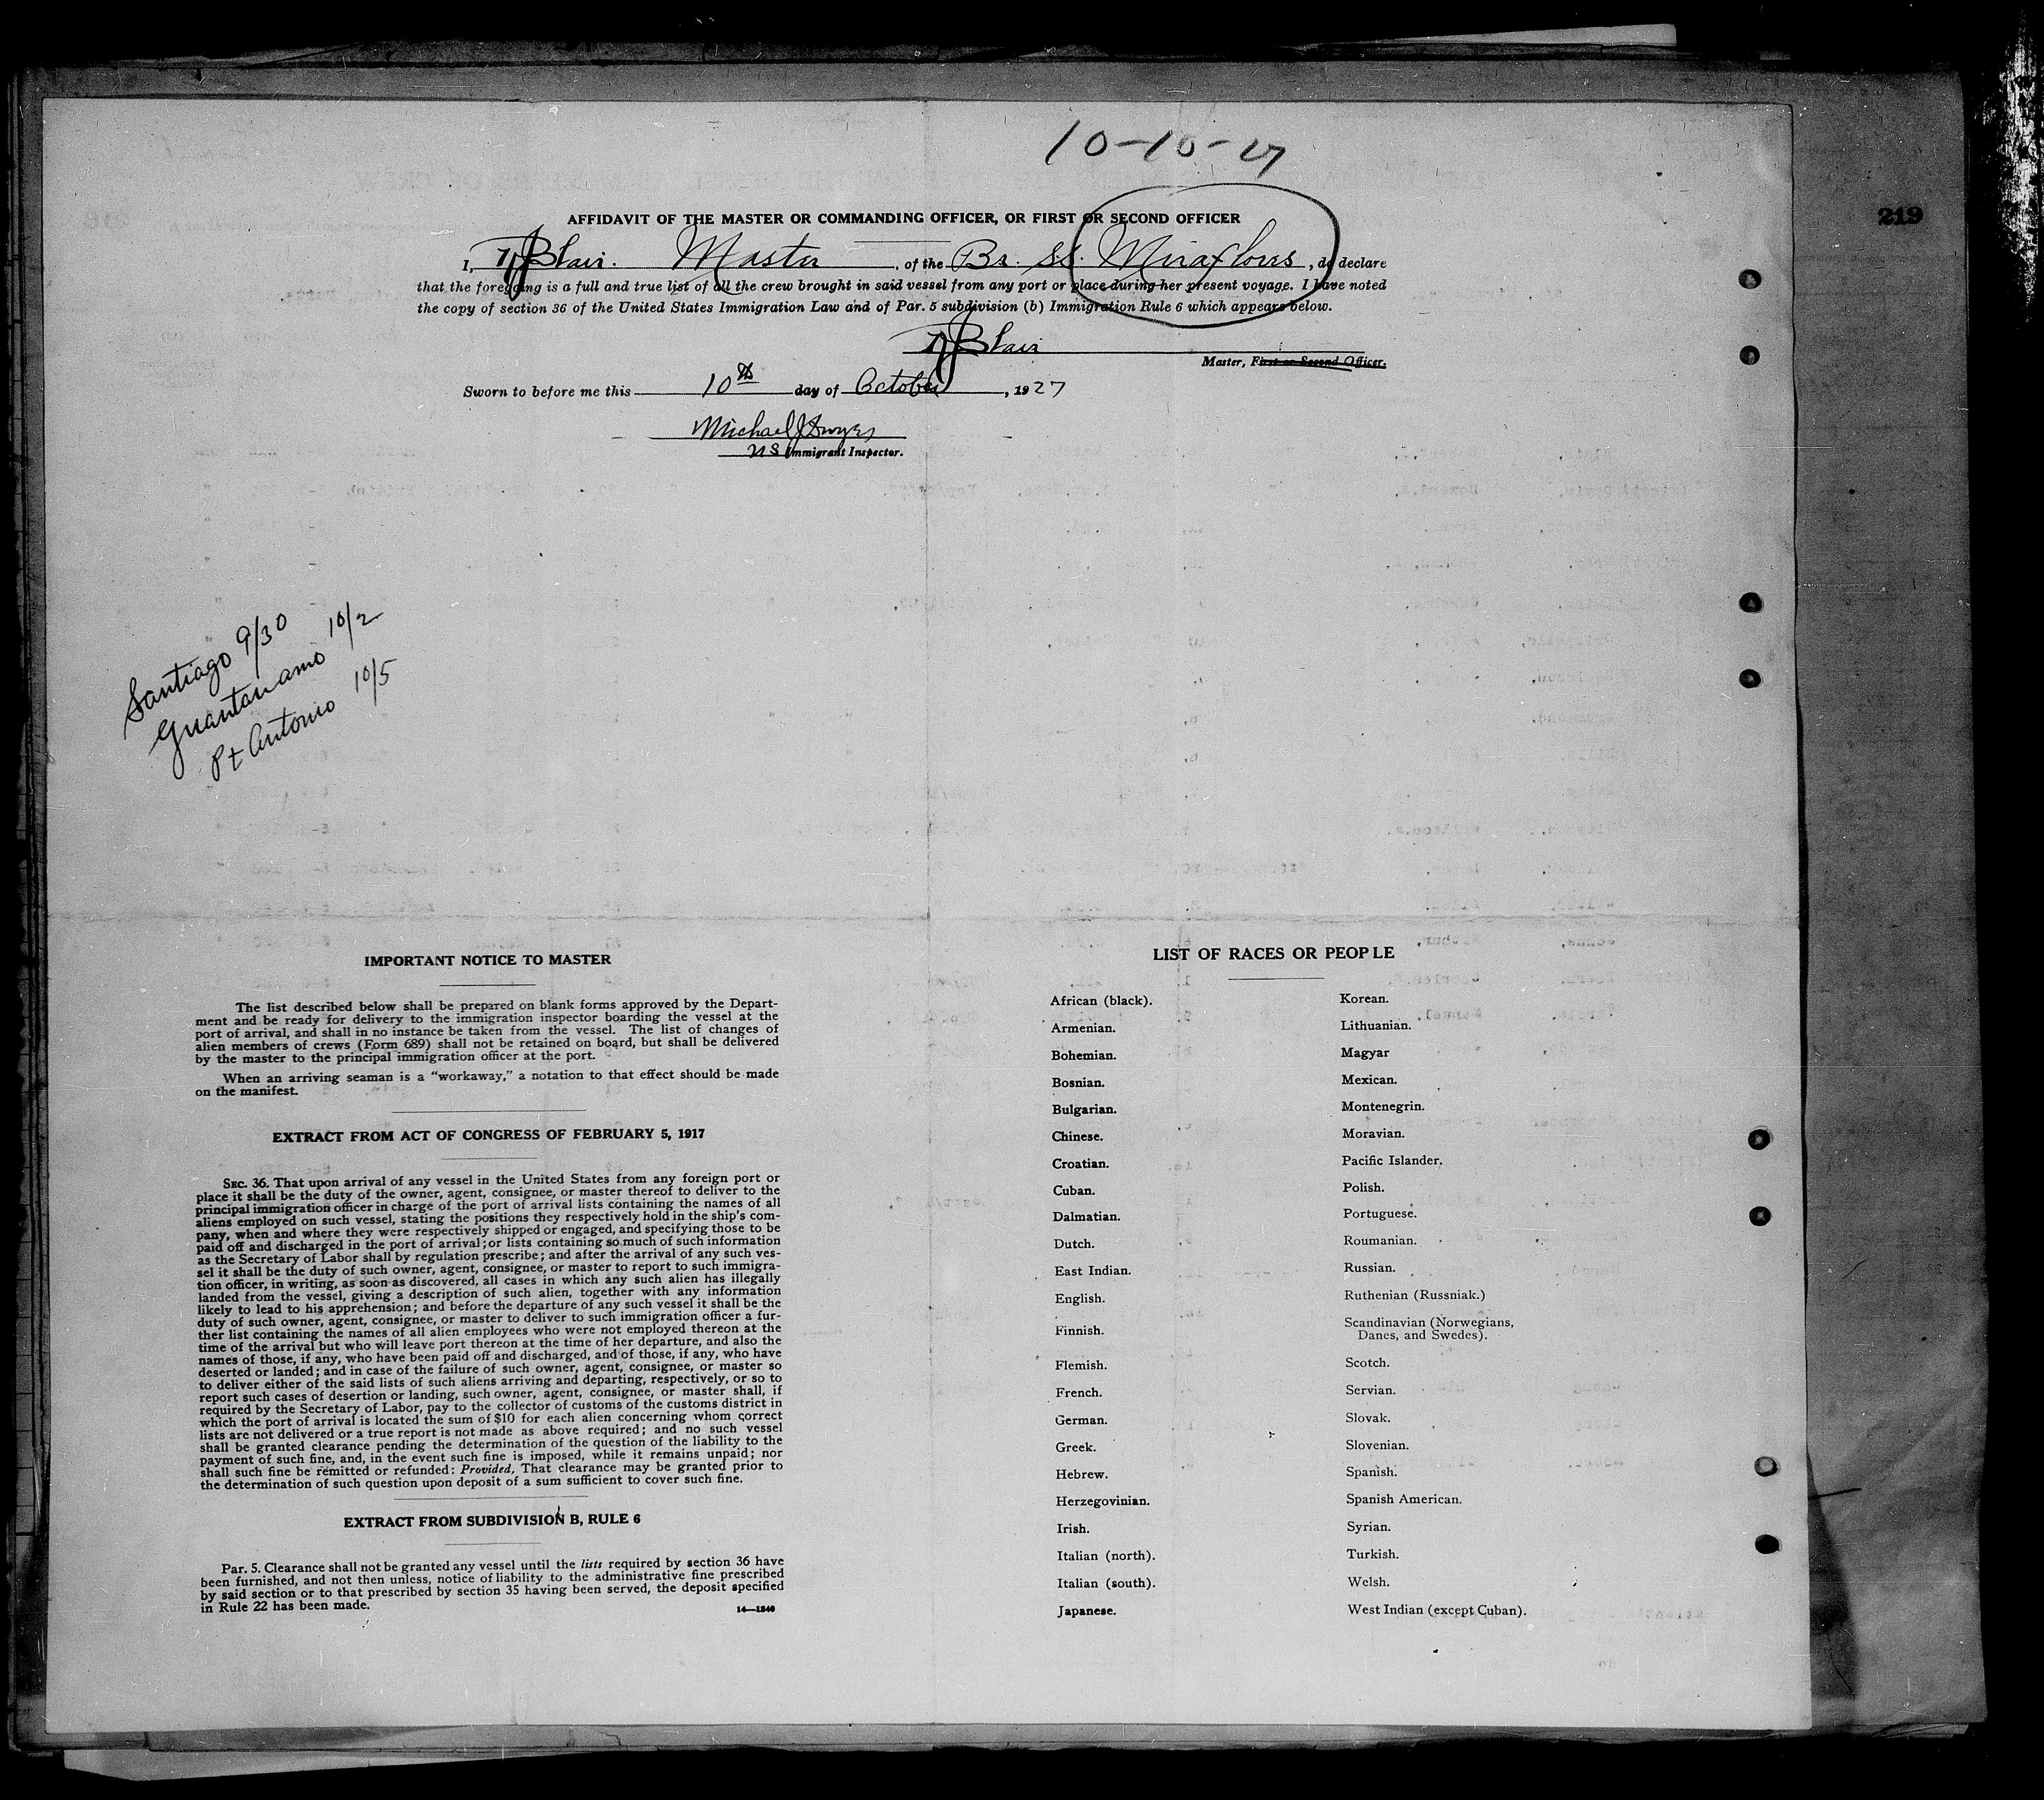 10-10-27
219
AFFIDAVIT OF THE MASTER OR COMMANDING OFFICER, OR FIRST OR SECOND OFFICER
I, Blair. Master, of the Br. SS. Miraflores, do declare
that the foregoing is a full and true list of all the crew brought in said vessel from any port or place during her present voyage. I have noted
the copy of section 36 of the United States Immigration Law and of Par. 5 subdivision (b) Immigration Rule 6 which appears below.
Blair
Master, First or Second Officer.
Sworn to before me this 10th day of October, 1927
Michael J Dwyer
US Immigrant Inspector.
Santiago 9/30
Guantanamo 10/2
Pt Antonio 10/5
IMPORTANT NOTICE TO MASTER
The list described below shall be prepared on blank forms approved by the Depart-
ment and be ready for delivery to the immigration inspector boarding the vessel at the
port of arrival, and shall in no instance be taken from the vessel. The list of changes of
alien members of crews (Form 689) shall not be retained on board, but shall be delivered
by the master to the principal immigration officer at the port.
When an arriving seaman is a "workaway," a notation to that effect should be made
on the manifest.
EXTRACT FROM ACT OF CONGRESS OF FEBRUARY 5, 1917
SEC. 36. That upon arrival of any vessel in the United States from any foreign port or
place it shall be the duty of the owner, agent, consignee, or master thereof to deliver to the
principal immigration officer in charge of the port of arrival lists containing the names of all
aliens employed on such vessel, stating the positions they respectively hold in the ship's com-
pany, when and where they were respectively shipped or engaged, and specifying those to be
paid off and discharged in the port of arrival; or lists containing so much of such information
as the Secretary of Labor shall by regulation prescribe; and after the arrival of any such ves-
sel it shall be the duty of such owner, agent, consignee, or master to report to such immigra-
tion officer, in writing, as soon as discovered, all cases in which any such alien has illegally
landed from the vessel, giving a description of such alien, together with any information
likely to lead to his apprehension; and before the departure of any such vessel it shall be the
duty of such owner, agent, consignee, or master to deliver to such immigration officer a fur-
ther list containing the names of all alien employees who were not employed thereon at the
time of the arrival but who will leave port thereon at the time of her departure, and also the
names of those, if any, who have been paid off and discharged, and of those, if any, who have
deserted or landed; and in case of the failure of such owner, agent, consignee, or master so
to deliver either of the said lists of such aliens arriving and departing, respectively, or so to
report such cases of desertion or landing, such owner, agent, consignee, or master shall, if
required by the Secretary of Labor, pay to the collector of customs of the customs district in
which the port of arrival is located the sum of $10 for each alien concerning whom correct
lists are not delivered or a true report is not made as above required; and no such vessel
shall be granted clearance pending the determination of the question of the liability to the
payment of such fine, and, in the event such fine is imposed, while it remains unpaid; nor
shall such fine be remitted or refunded: Provided, That clearance may be granted prior to
the determination of such question upon deposit of a sum sufficient to cover such fine.
EXTRACT FROM SUBDIVISION B, RULE 6
Par. 5. Clearance shall not be granted any vessel until the lists required by section 36 have
been furnished, and not then unless, notice of liability to the administrative fine prescribed
by said section or to that prescribed by section 35 having been served, the deposit specified
in Rule 22 has been made.
14—1240
LIST OF RACES OR PEOPLE
African (black).
Armenian.
Bohemian.
Bosnian.
Bulgarian.
Chinese.
Croatian.
Cuban.
Dalmatian.
Dutch.
East Indian.
English.
Finnish.
Flemish.
French.
German.
Greek.
Hebrew.
Herzegovinian.
Irish.
Italian (north).
Italian (south).
Japanese.
Korean.
Lithuanian.
Magyar
Mexican.
Montenegrin.
Moravian.
Pacific Islander.
Polish.
Portuguese.
Roumanian.
Russian.
Ruthenian (Russniak.)
Scandinavian (Norwegians,
Danes, and Swedes).
Scotch.
Servian.
Slovak.
Slovenian.
Spanish.
Spanish American.
Syrian.
Turkish.
Welsh.
West Indian (except Cuban).